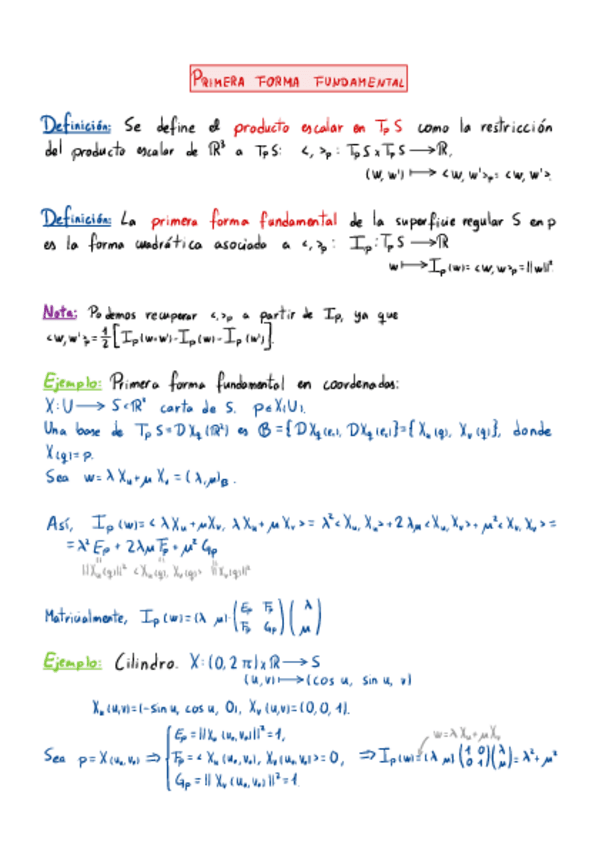 PRIMERA FORMA FUNDAMENTAL
Definición: Se define el producto escalar en TₚS como la restricción
del producto escalar de ℝ³ a TₚS: <,>ₚ: TₚS x TₚS ⟶ ℝ,
(w, w') ⟼ <w, w'>ₚ = <w, w'>.
Definición: La primera forma fundamental de la superficie regular S en p
es la forma cuadrática asociada a <,>ₚ: Iₚ: TₚS ⟶ ℝ
w ⟼ Iₚ(w) = <w, w>ₚ = ||w||².
Nota: Podemos recuperar <,>ₚ a partir de Iₚ, ya que
<w, w'>ₚ = 1/2 [Iₚ(w+w') - Iₚ(w) - Iₚ(w')].
Ejemplo: Primera forma fundamental en coordenadas:
X: U ⟶ S ⊂ ℝ³ carta de S. p ∈ X(U).
Una base de TₚS = DX_q(ℝ²) es B = {DX_q(e₁), DX_q(e₂)} = {Xᵤ(q), Xᵥ(q)}, donde
X(q) = p.
Sea w = λXᵤ + μXᵥ = (λ, μ)_B.
Así, Iₚ(w) = <λXᵤ + μXᵥ, λXᵤ + μXᵥ> = λ²<Xᵤ, Xᵤ> + 2λμ<Xᵤ, Xᵥ> + μ²<Xᵥ, Xᵥ> =
= λ²Eₚ + 2λμFₚ + μ²Gₚ
||Xᵤ(q)||² <Xᵤ(q), Xᵥ(q)> ||Xᵥ(q)||²
Matricialmente, Iₚ(w) = (λ μ)·(Eₚ Fₚ; Fₚ Gₚ)(λ; μ)
Ejemplo: Cilindro. X: (0, 2π) x ℝ ⟶ S
(u, v) ⟼ (cos u, sin u, v)
Xᵤ(u,v) = (-sin u, cos u, 0), Xᵥ(u,v) = (0, 0, 1).
w = λXᵤ + μXᵥ
Eₚ = ||Xᵤ(u₀, v₀)||² = 1,
Sea p = X(u₀, v₀) ⇒ Fₚ = <Xᵤ(u₀, v₀), Xᵥ(u₀, v₀)> = 0, ⇒ Iₚ(w) = (λ μ)(1 0; 0 1)(λ; μ) = λ² + μ²
Gₚ = ||Xᵥ(u₀, v₀)||² = 1.